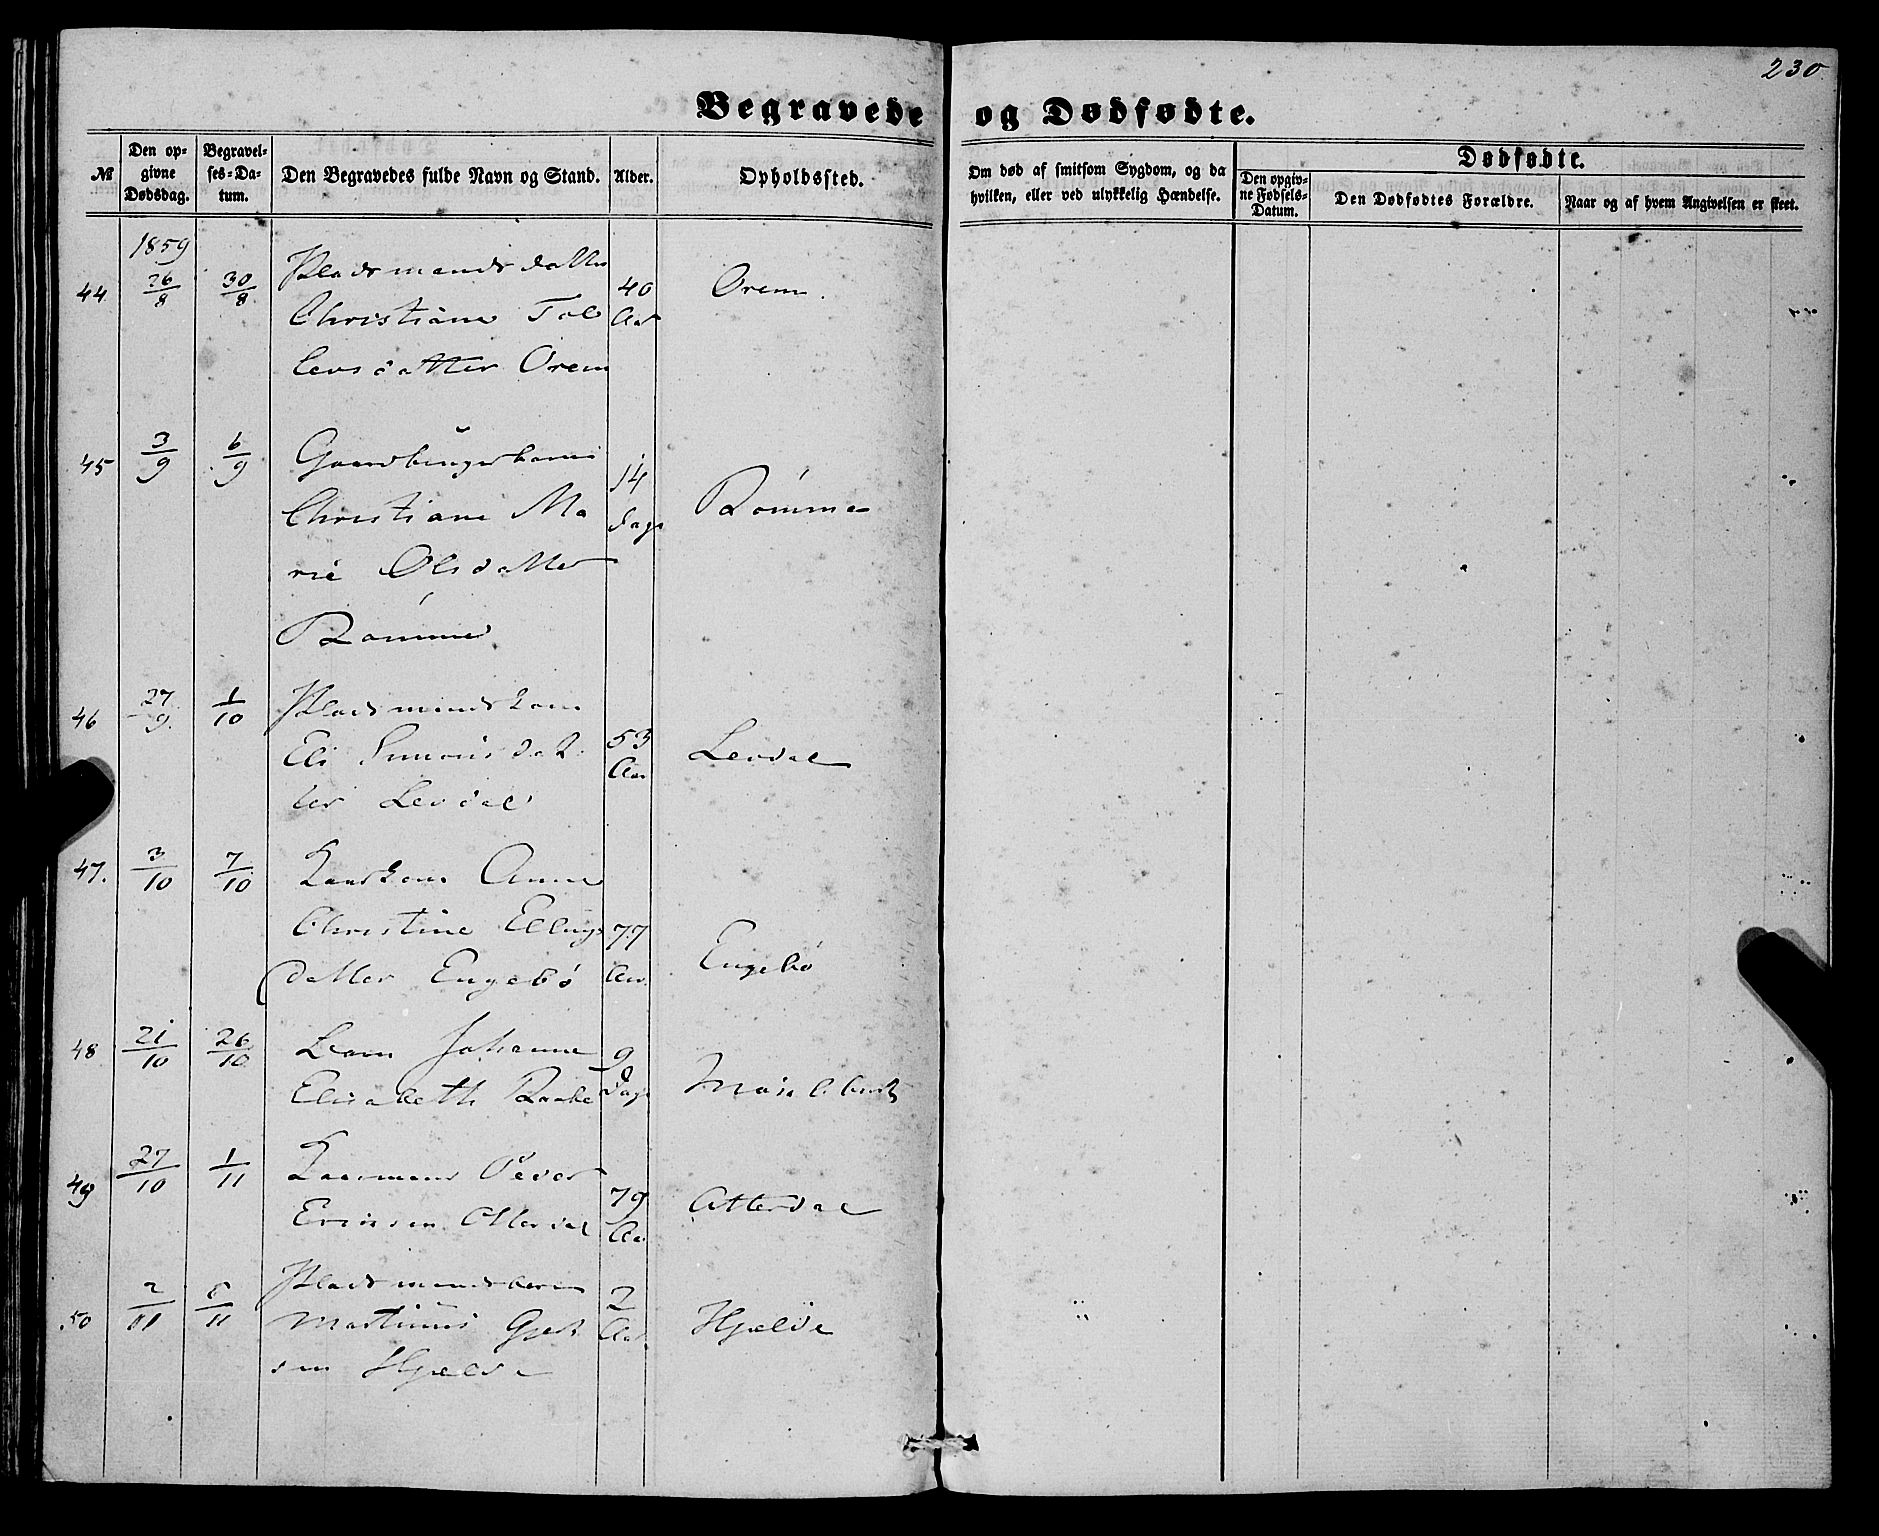 230
Begravede og Dødfødte.
№
Den opgivne Dødsdag.
Begravelses-Datum.
Den Begravedes fulde Navn og Stand.
Alder.
Opholdssted.
Om død af smitsom Sygdom, og da hvilken, eller ved ulykkelig Hændelse.
Dødfødte.
Den opgivne Fødsels-Datum.
Den Dødfødtes Forældre.
Naar og af hvem Angivelsen er skeet.
1859
44 26/8 30/8 Pladsmandsdatter 40 Orem.
Christiane Tol Aar
levsdatter Orem
45 3/9 6/9 Gaardbruger 14
Christiane Ma dage Römme
rie Olsdatter
Römme
46 27/9 1/10 Pladsmandskone
Eli Simonsdat 53 Levdal
ter Levdal Aar
47. 3/10 7/10 Kaarkone Anne
Christine Ellings 77 Engebö
datter Engebö Aar.
48 21/10 26/10 Johanne 9
Elisabeth Raabe Dage
49 27/10 1/11 Kaarmand Peder 79 Atterdal
Atterdal Aar
50 2/11 Pladsmandsbarn 2
Martinus Aar Hjelde
sen Hjelde